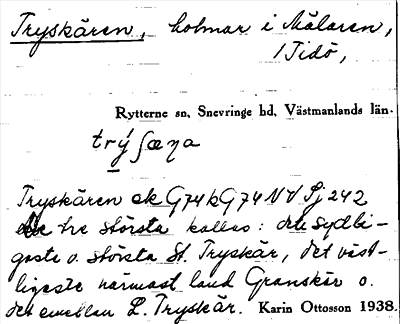 Tryskären, holmar i Mälaren,
/Tidö,
Rytterne sn, Snevringe hd, Västmanlands län.
trýʃæṇa
Tryskären ek G74k G74 NV Sj 242
De tre största kallas: den sydli-
gaste o. största St. Tryskär, det väst-
ligaste närmast land Granskär o.
det emellan L. Tryskär. Karin Ottosson 1938.